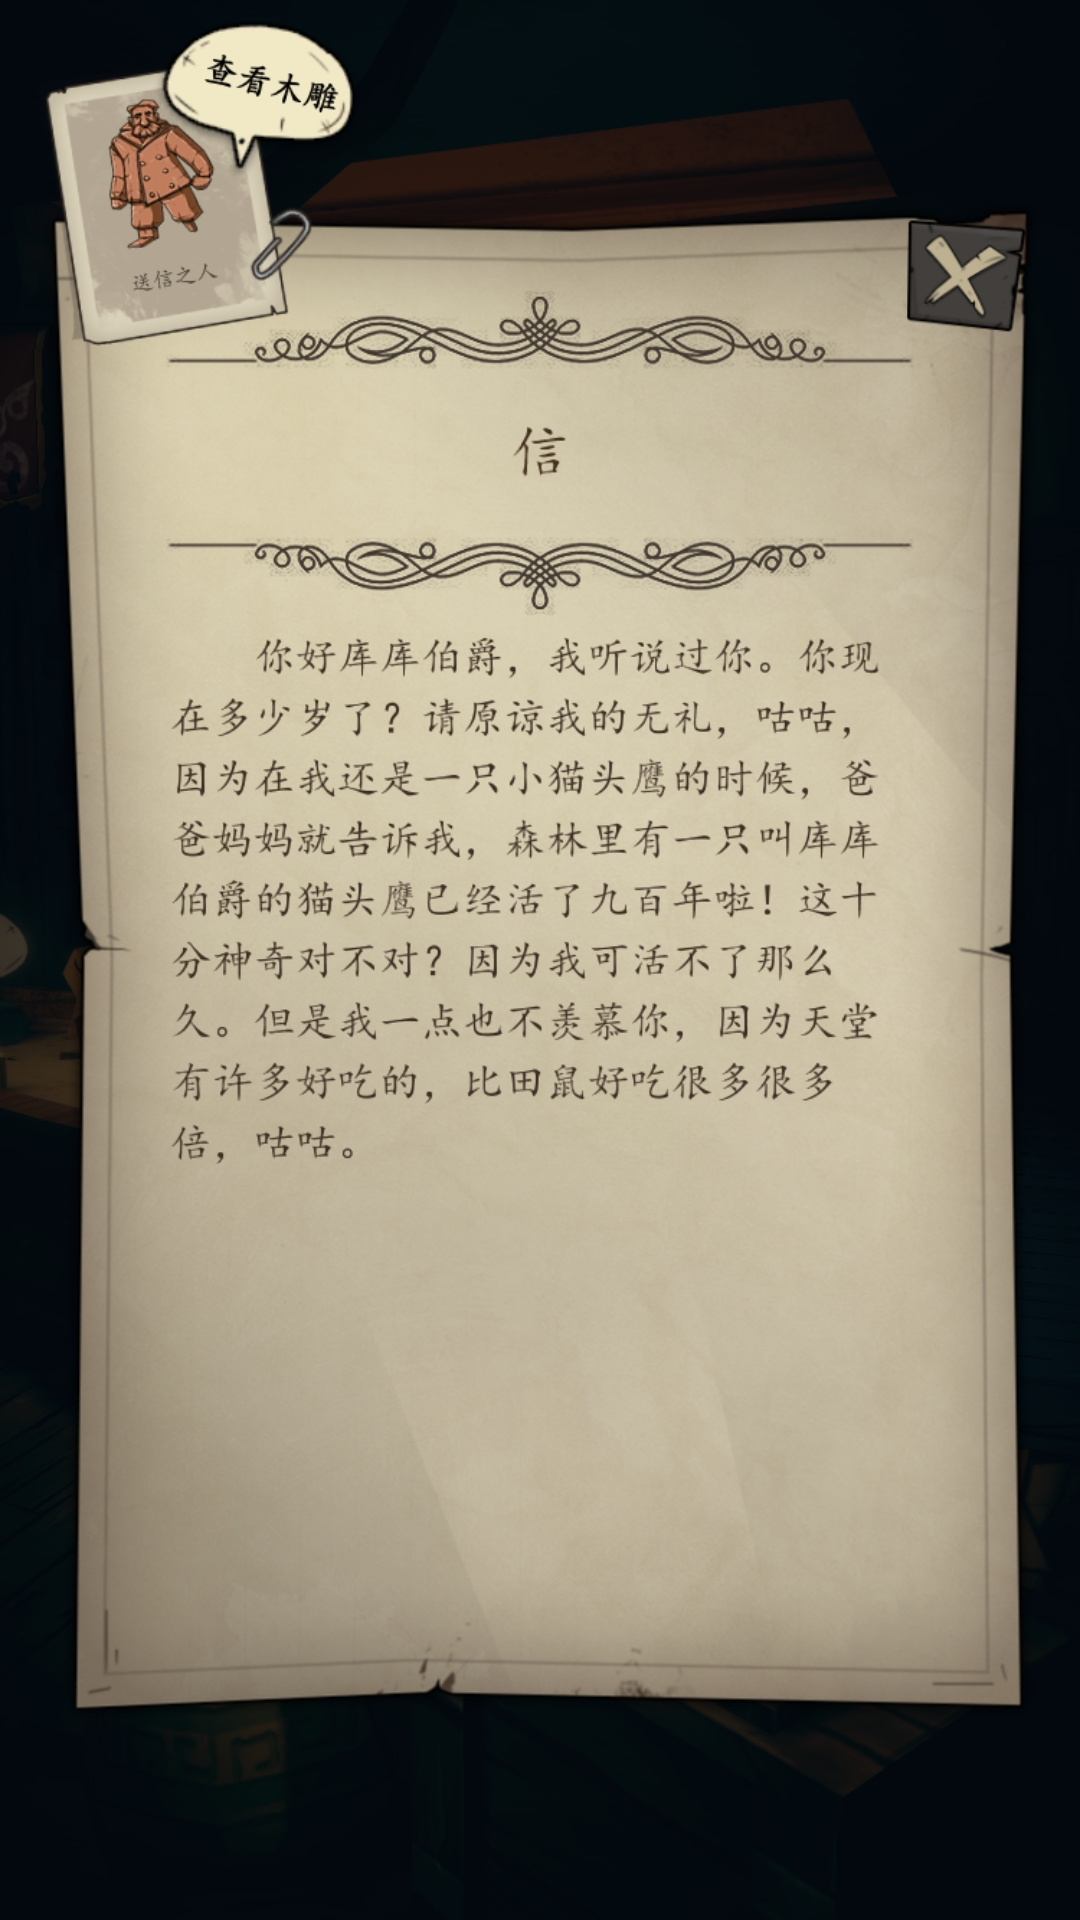 查看木雕
送信之人
信
你好库库伯爵，我听说过你。你现
在多少岁了？请原谅我的无礼，咕咕，
因为在我还是一只小猫头鹰的时候，爸
爸妈妈就告诉我，森林里有一只叫库库
伯爵的猫头鹰已经活了九百年啦！这十
分神奇对不对？因为我可活不了那么
久。但是我一点也不羡慕你，因为天堂
有许多好吃的，比田鼠好吃很多很多
倍，咕咕。